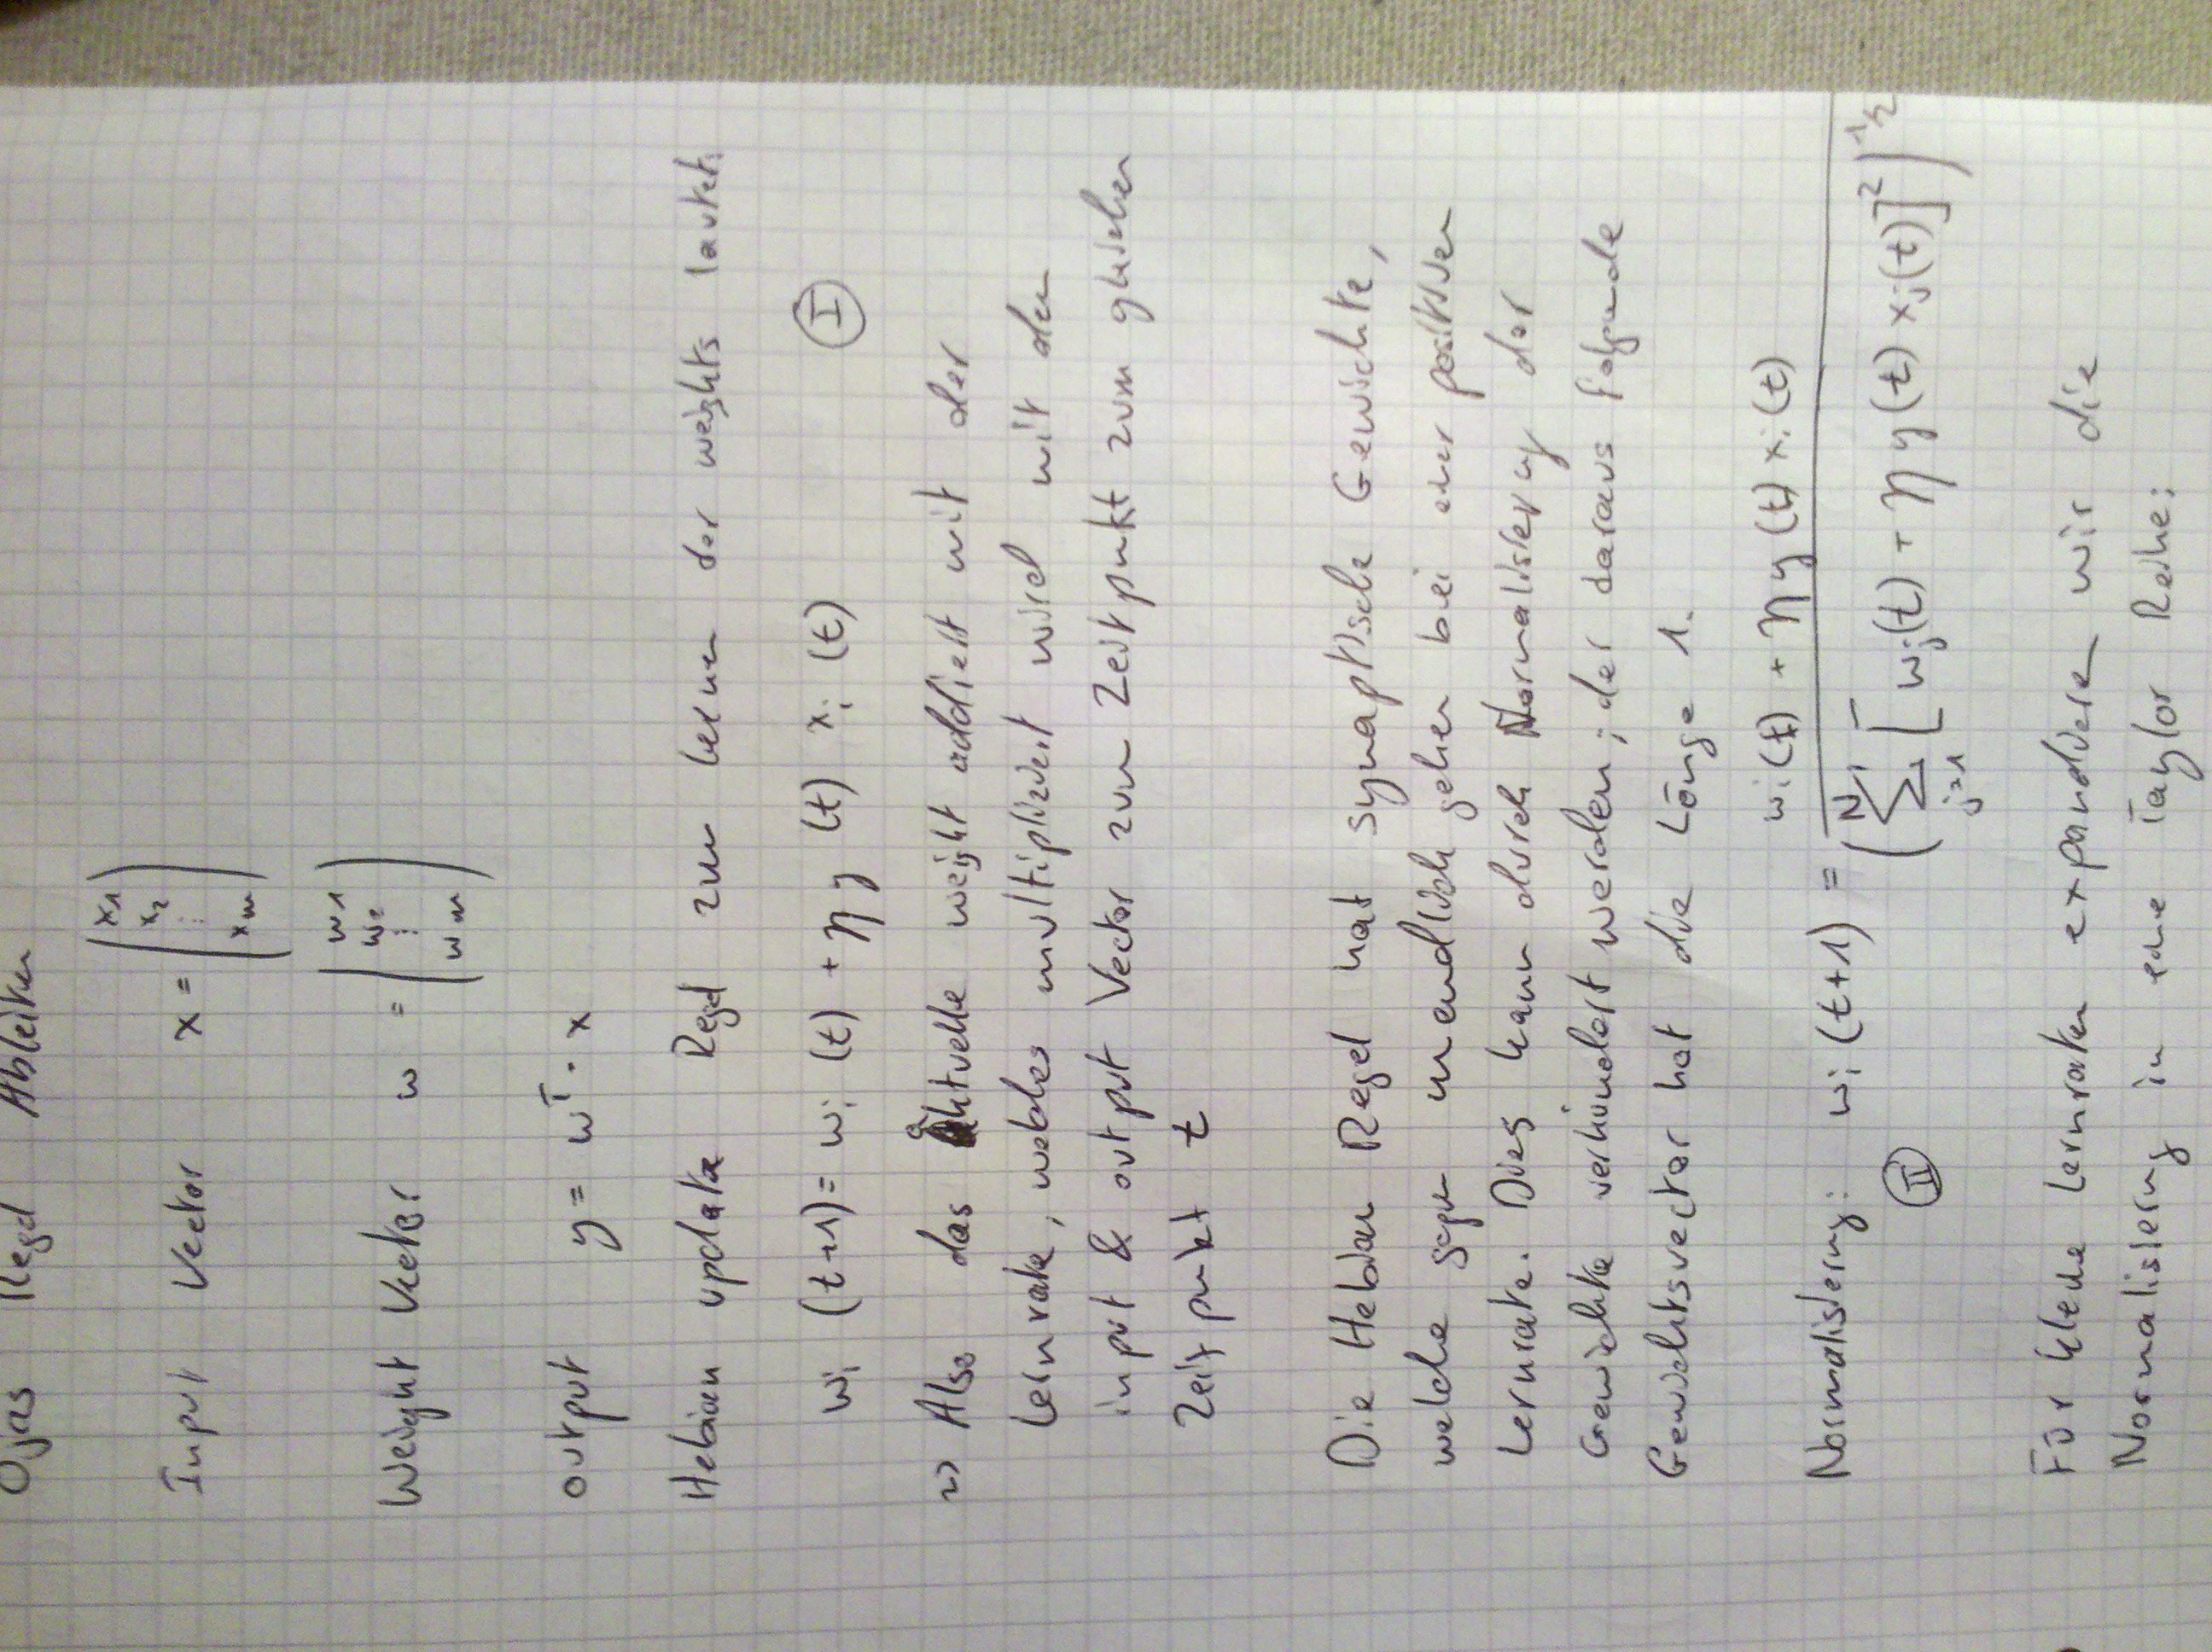 Ojas Regel Ableiten
Input Vector x = (x1 x2 ⋮ xm)
Weight Vector w = (w1 w2 ⋮ wm)
output y = w^T · x
Hebian update Regel zum lernen der weights lautet:
wi (t+1) = wi (t) + η y (t) xi (t) Ⓘ
~> Also das aktuelle weight addiert mit der
Lernrate, welches multipliziert wird mit dem
input & output Vector zum Zeitpunkt zum gleichen
Zeitpunkt t
Die Hebian Regel hat synaptische Gewichte,
welche gegen unendlich gehen bei einer positiven
Lernrate. Dies kann durch Normalisierung der
Gewichte verhindert werden; der daraus folgende
Gewichtsvector hat die Länge 1.
Normalisierung: wi (t+1) = (wi(t) + η y (t) xi (t)) / (∑_{j=1}^{N} [wj(t) + η y(t) xj(t)]^2)^{1/2}
II
Für kleine Lernraten expandieren wir die
Normalisierung in eine Taylor Reihe: